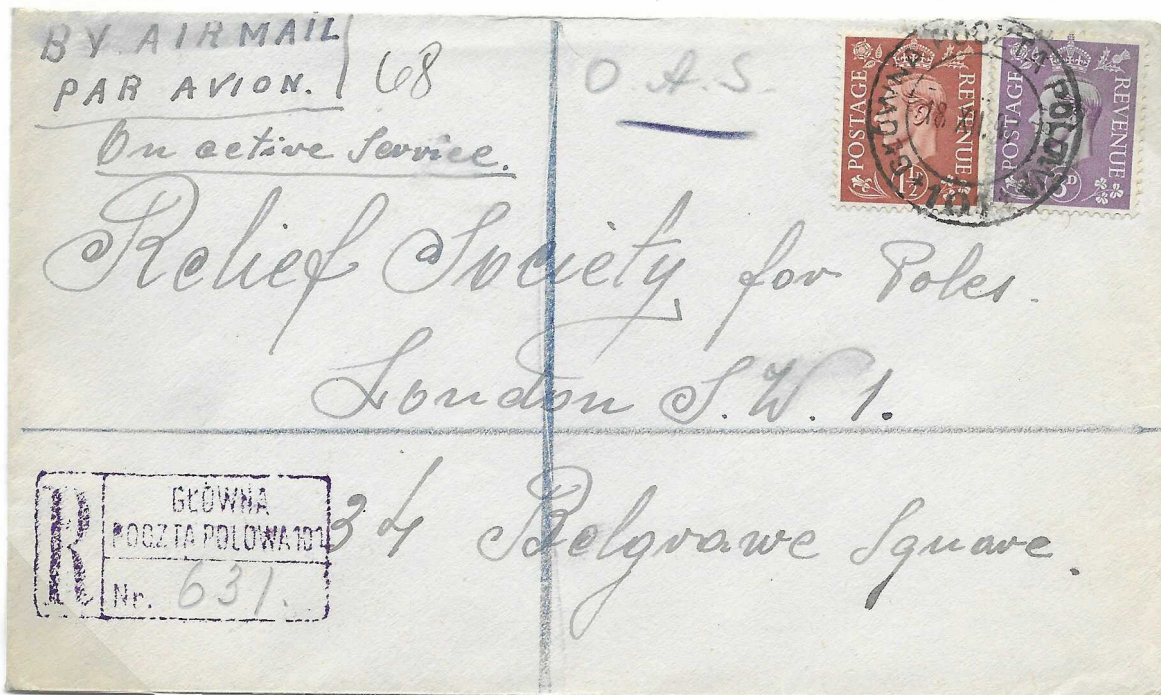 BY AIR MAIL
PAR AVION.
68
O.A.S.
On active Service.
POSTAGE REVENUE
1½D
POSTAGE REVENUE
D
POCZTA POLOWA
GŁÓWNA
101
18 XI
Relief Society for Poles.
London S.W. 1.
34 Belgrawe Square.
R
GŁÓWNA
POCZTA POLOWA 101
Nr. 631.